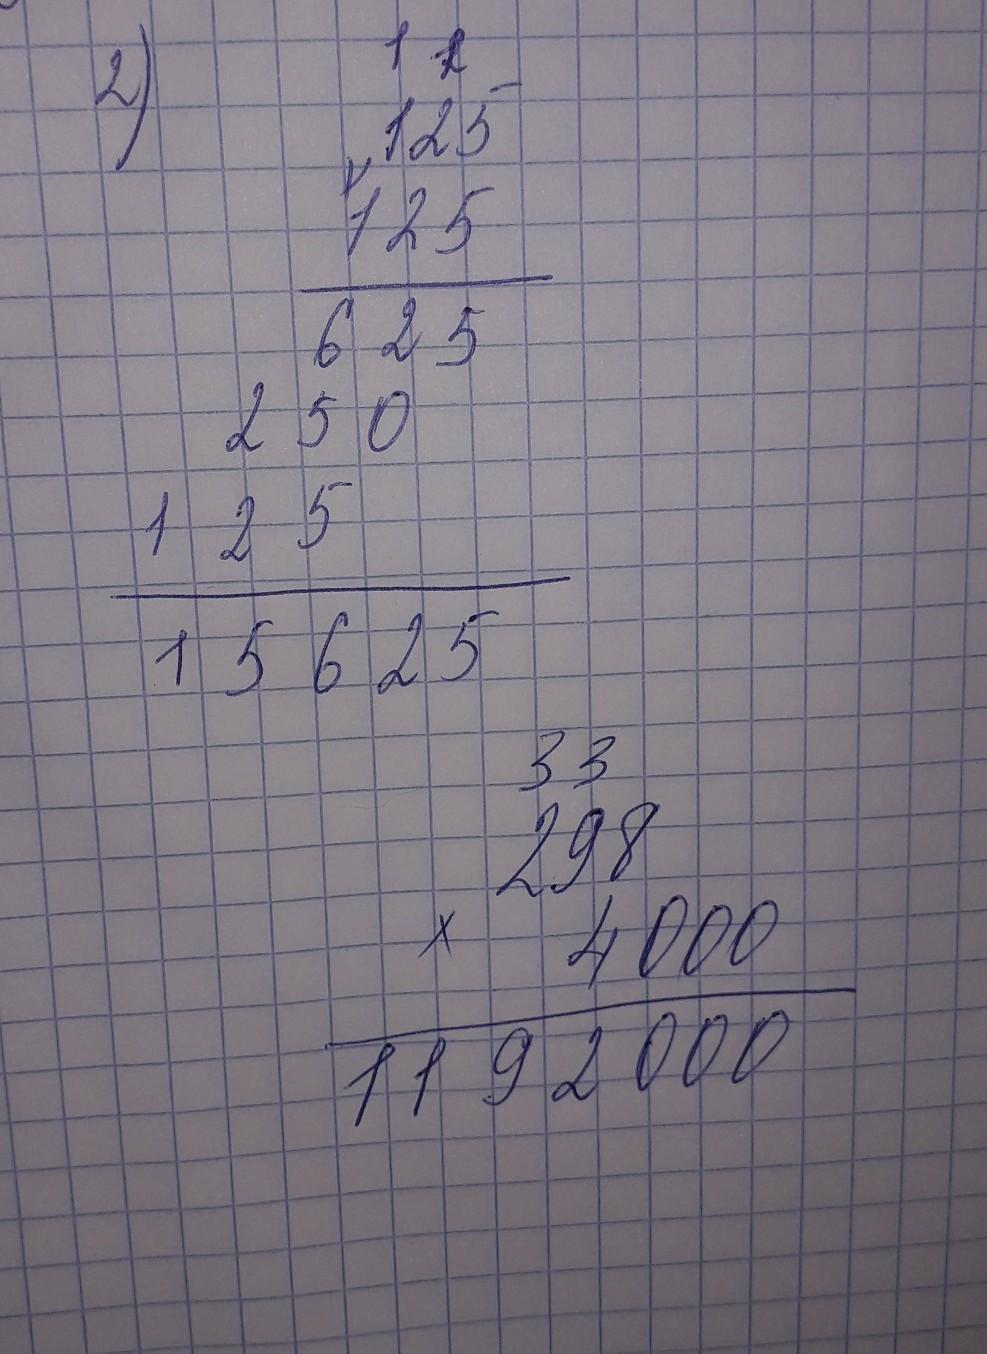 2)
1 2
125
× 125
625
250
125
15625
33
298
× 4000
1192000